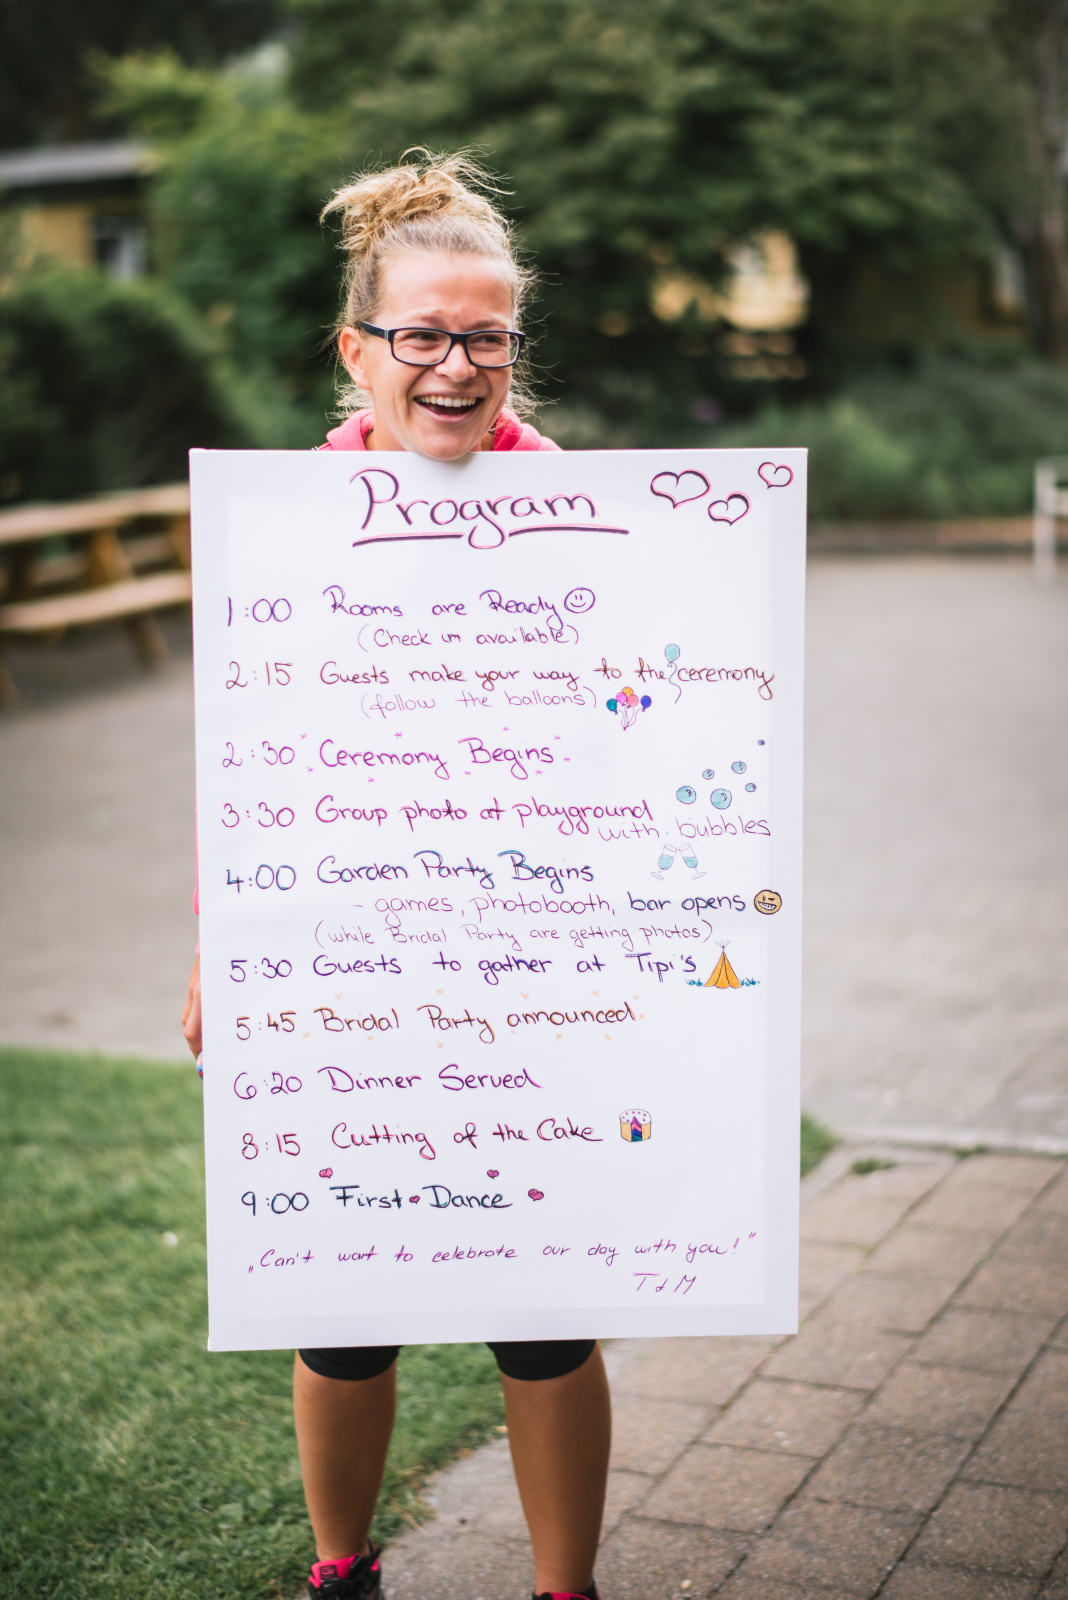 Program
1:00 Rooms are Ready
(Check in available)
2:15 Guests make your way to the ceremony
(follow the balloons)
2:30 Ceremony Begins
3:30 Group photo at playground
with bubbles
4:00 Garden Party Begins
- games, photobooth, bar opens
(while Bridal Party are getting photos)
5:30 Guests to gather at Tipi's
5:45 Bridal Party announced
6:20 Dinner Served
8:15 Cutting of the Cake
9:00 First Dance
„Can't wait to celebrate our day with you!"
T & M